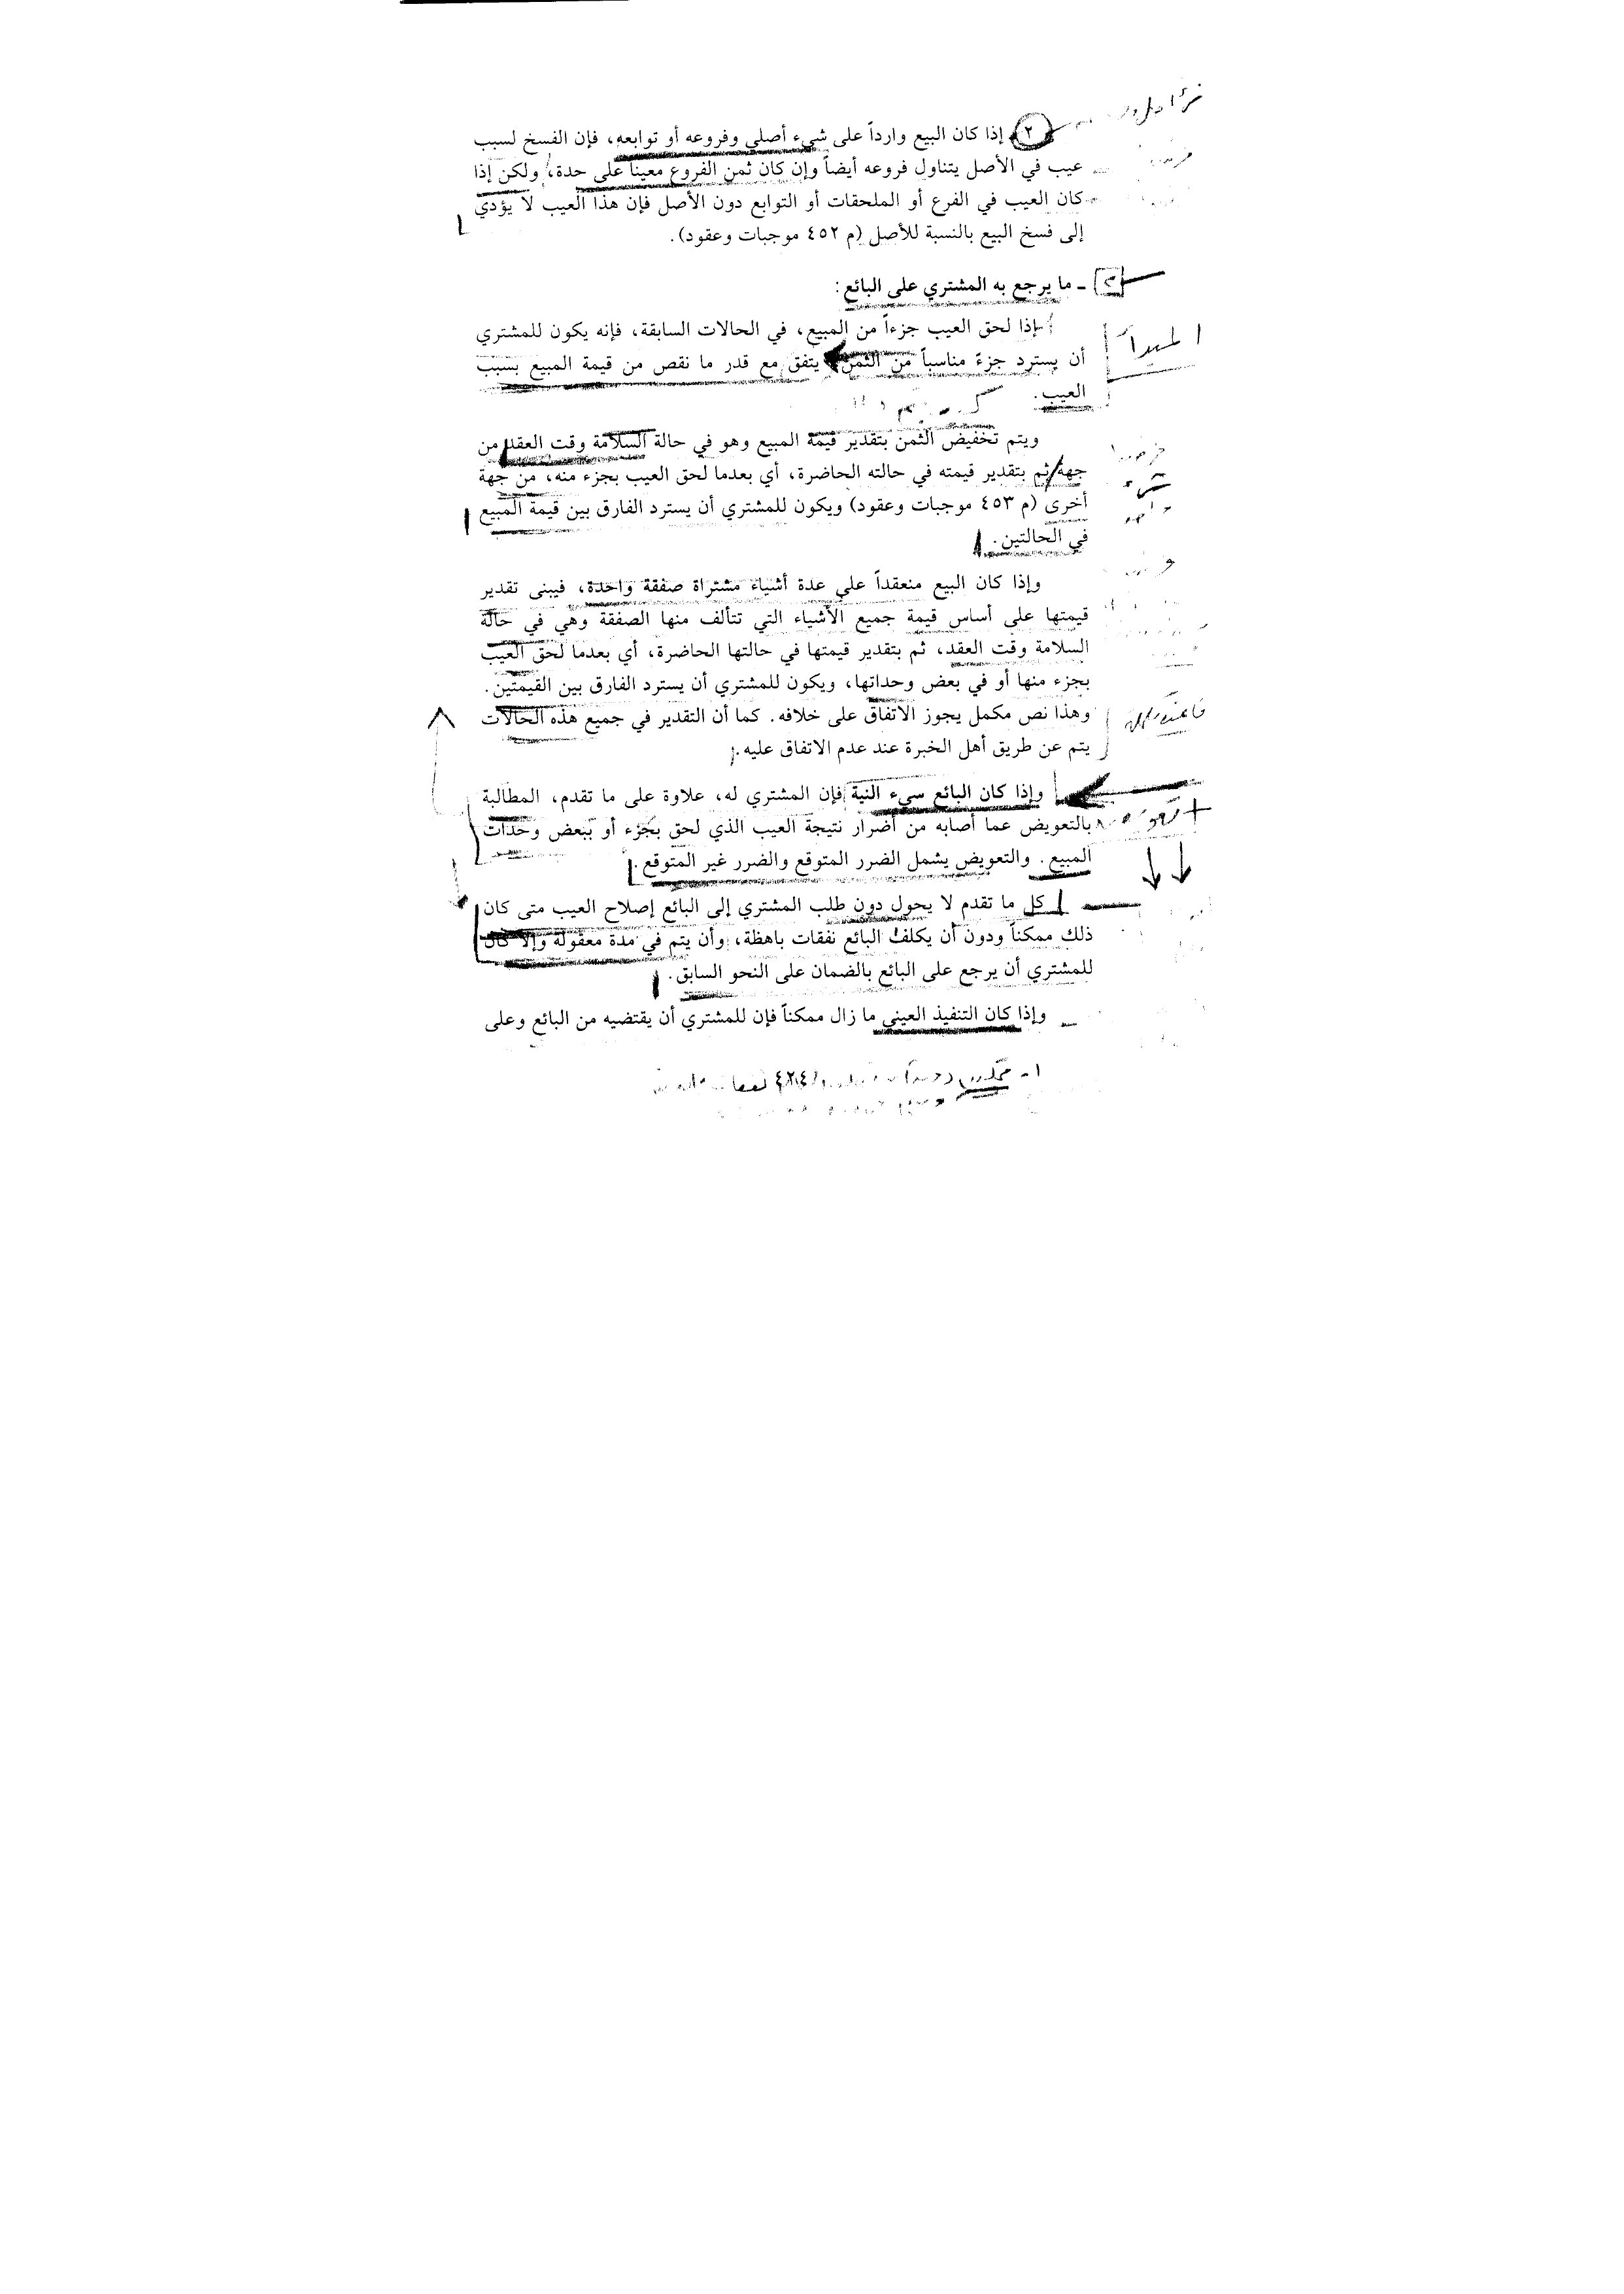 ٢ - إذا كان البيع وارداً على شيء أصلي وفروعه أو توابعه، فإن الفسخ لسبب
عيب في الأصل يتناول فروعه أيضاً وإن كان ثمن الفروع معيناً على حدة، ولكن إذا
كان العيب في الفرع أو الملحقات أو التوابع دون الأصل فإن هذا العيب لا يؤدي
إلى فسخ البيع بالنسبة للأصل (م ٤٥٢ موجبات وعقود).
ـ ما يرجع به المشتري على البائع:
إذا لحق العيب جزءاً من المبيع، في الحالات السابقة، فإنه يكون للمشتري
المبدأ
أن يسترد جزءً مناسباً من الثمن يتفق مع قدر ما نقص من قيمة المبيع بسبب
العيب.
ويتم تخفيض الثمن بتقدير قيمة المبيع وهو في حالة السلامة وقت العقد من
جهة ثم بتقدير قيمته في حالته الحاضرة، أي بعدما لحق العيب بجزء منه، من جهة
أخرى (م ٤٥٣ موجبات وعقود) ويكون للمشتري أن يسترد الفارق بين قيمة المبيع
في الحالتين.
وإذا كان البيع منعقداً على عدة أشياء مشتراة صفقة واحدة، فيبنى تقدير
قيمتها على أساس قيمة جميع الأشياء التي تتألف منها الصفقة وهي في حالة
السلامة وقت العقد، ثم بتقدير قيمتها في حالتها الحاضرة، أي بعدما لحق العيب
بجزء منها أو في بعض وحداتها، ويكون للمشتري أن يسترد الفارق بين القيمتين.
وهذا نص مكمل يجوز الاتفاق على خلافه. كما أن التقدير في جميع هذه الحالات
يتم عن طريق أهل الخبرة عند عدم الاتفاق عليه.
وإذا كان البائع سيء النية فإن المشتري له، علاوة على ما تقدم، المطالبة
بالتعويض عما أصابه من أضرار نتيجة العيب الذي لحق بجزء أو ببعض وحدات
المبيع. والتعويض يشمل الضرر المتوقع والضرر غير المتوقع.
كل ما تقدم لا يحول دون طلب المشتري إلى البائع إصلاح العيب متى كان
ذلك ممكناً ودون أن يكلف البائع نفقات باهظة، وأن يتم في مدة معقولة وإلا كان
للمشتري أن يرجع على البائع بالضمان على النحو السابق.
وإذا كان التنفيذ العيني ما زال ممكناً فإن للمشتري أن يقتضيه من البائع وعلى